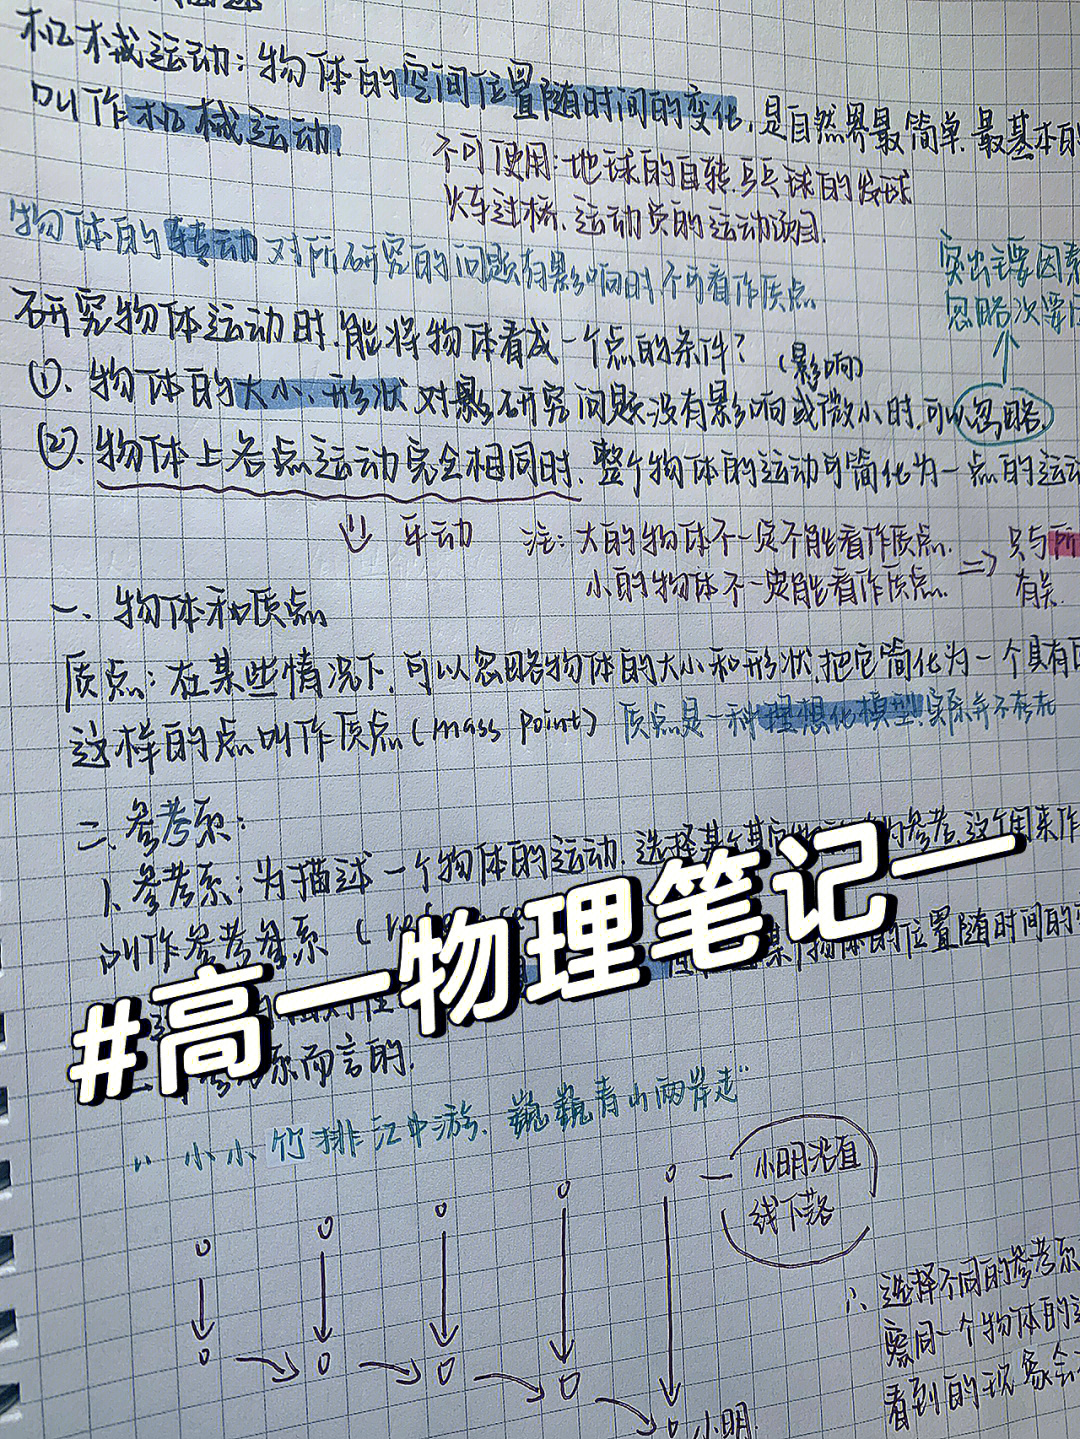 机械运动：物体的空间位置随时间的变化，是自然界最简单、最基本的
叫作机械运动.
不可使用：地球的自转、乒乓球的发球
火车过桥、运动员的运动项目.
物体的转动对所研究的问题有影响时，不可看作质点
突出主要因素
忽略次要
研究物体运动时，能将物体看成一个点的条件？
(影响)
(1)、物体的大小、形状对影研究问题没有影响或微小时，可以忽略.
(2)、物体上各点运动完全相同时，整个物体的运动可简化为一点的运动
平动
注：大的物体不一定不能看作质点.
小的物体不一定能看作质点.
=> 只与所
有关
一、物体和质点
质点：在某些情况下，可以忽略物体的大小和形状，把它简化为一个具有
这样的点叫作质点(mass point) 质点是一种理想化模型，实际并不存在
二、参考系：
1、参考系：为描述一个物体的运动，选择某个其它物 参考，这个用来作
叫作参考系 (
某个物体的位置随时间的
系而言的.
#高一物理笔记一
“小小竹排江中游，巍巍青山两岸走”
小明沿直
线下落
小明
∴选择不同的参考系
察同一个物体的
看到的现象会